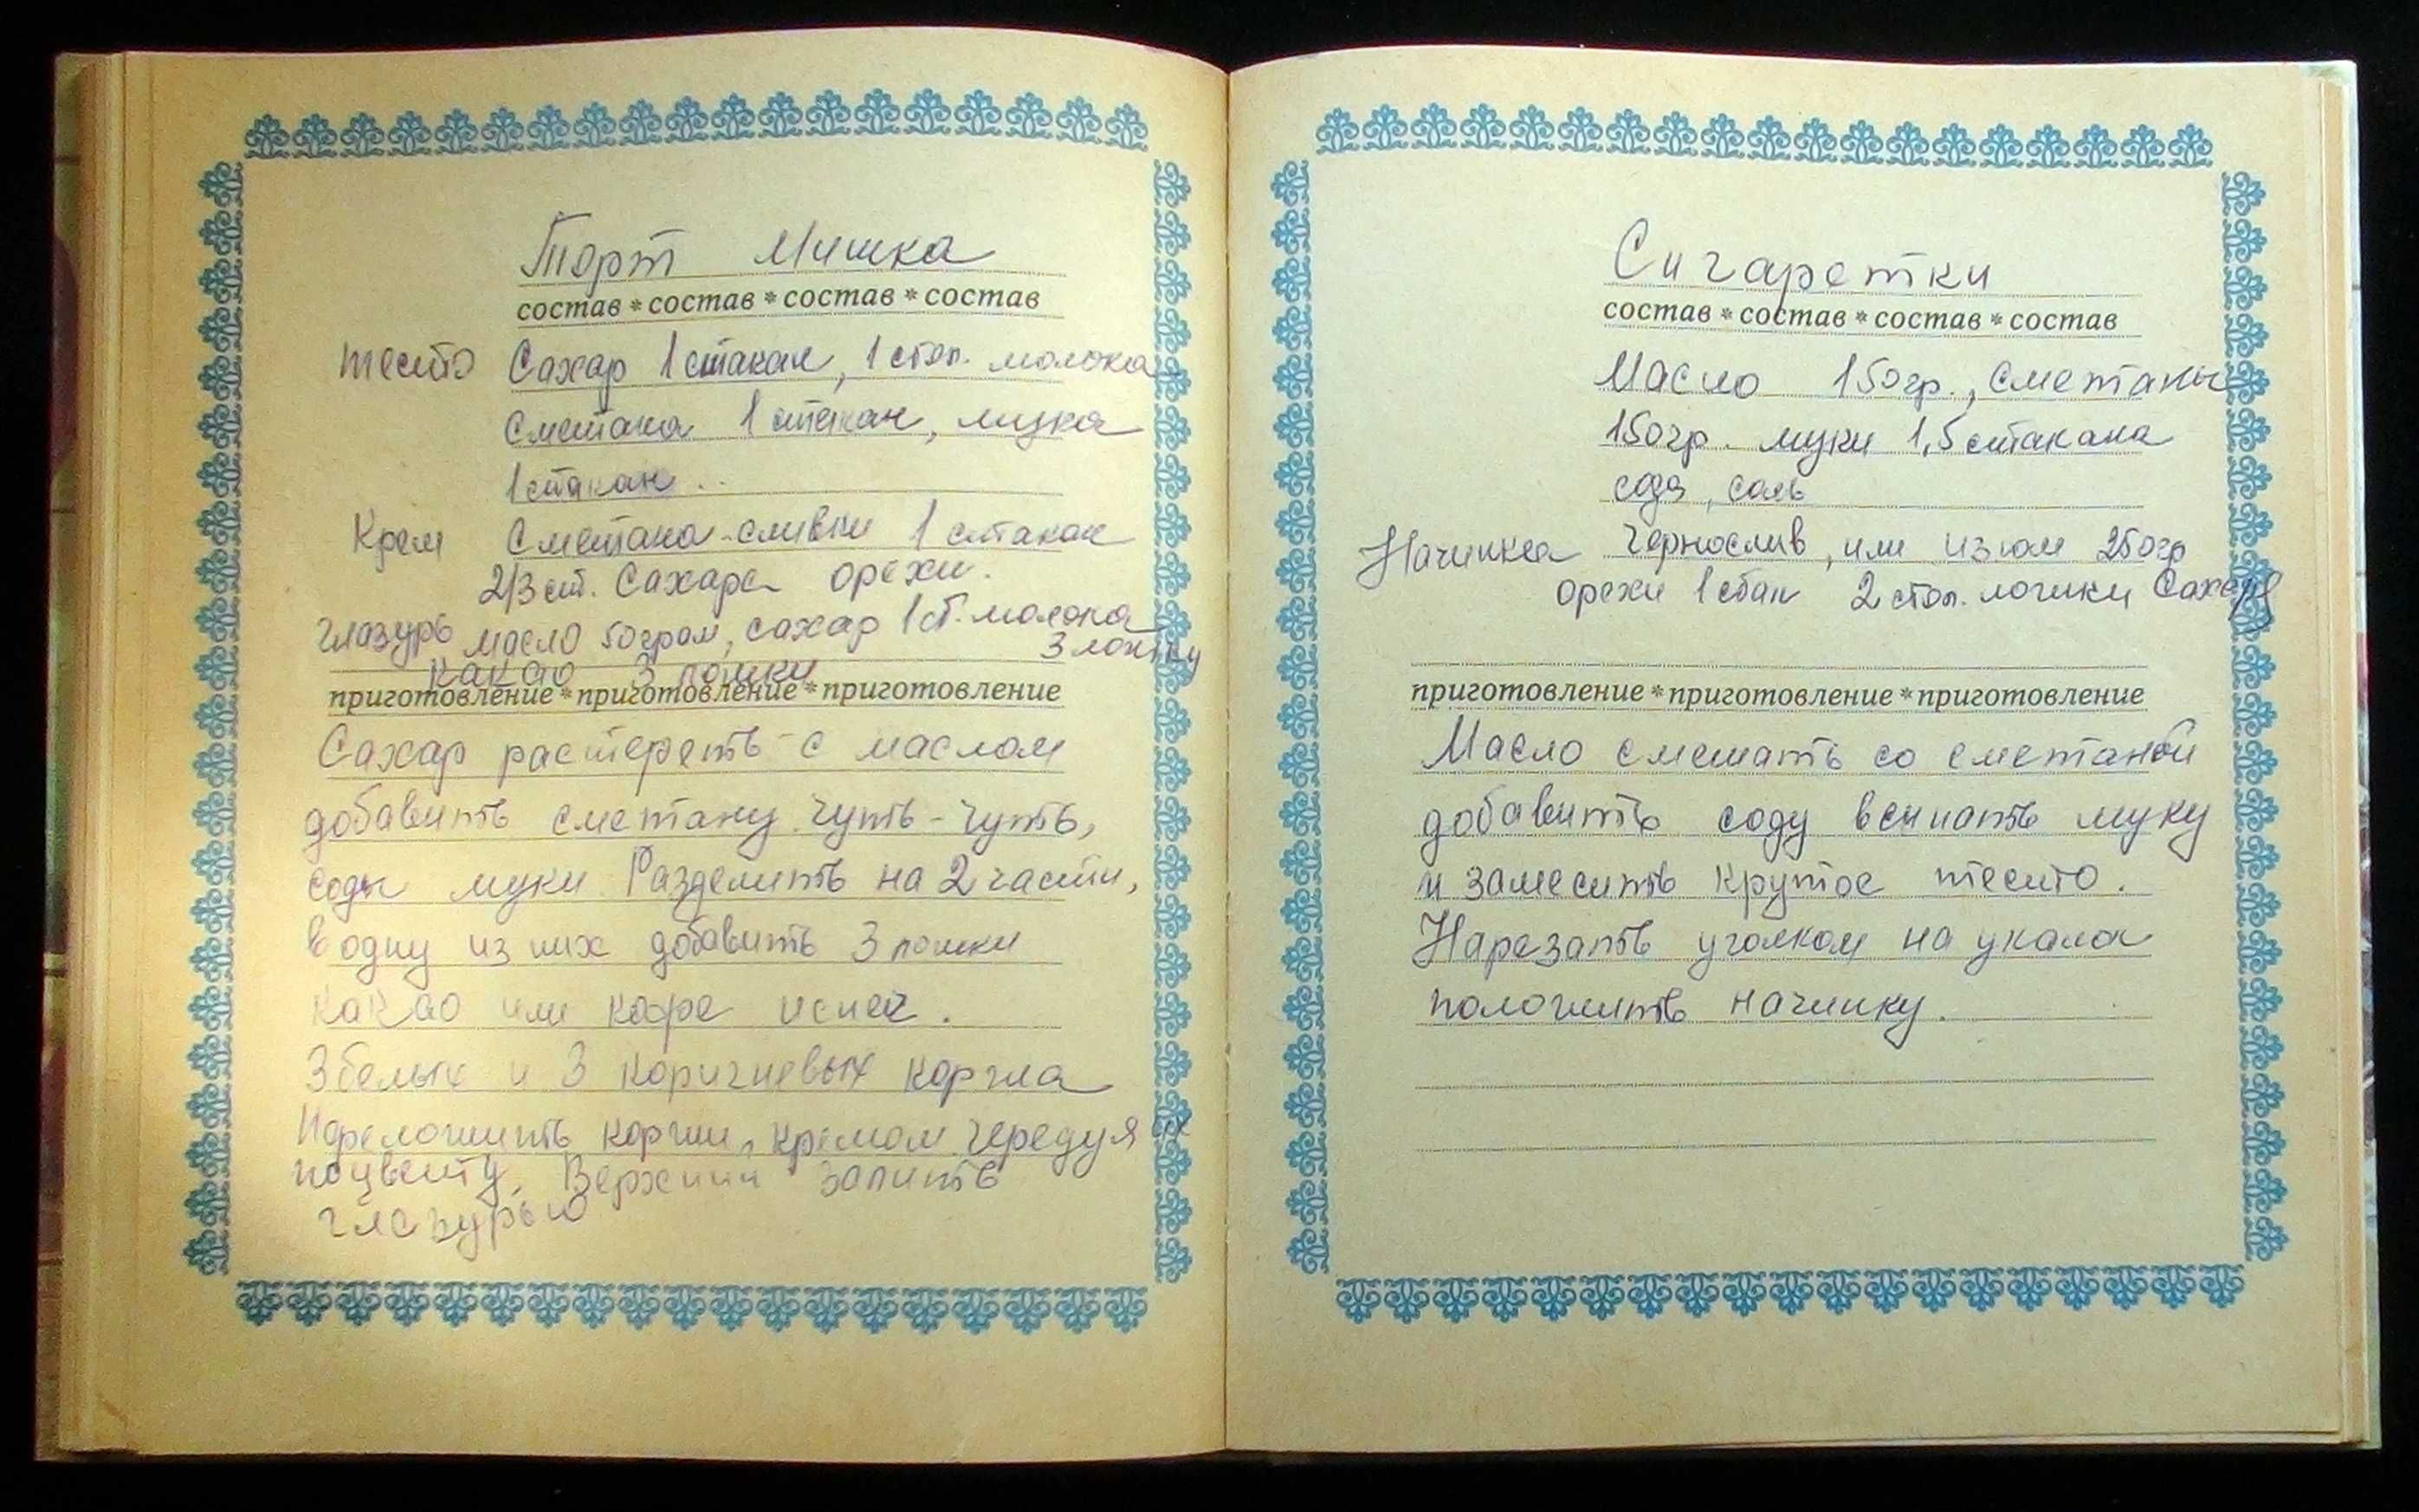 Торт Мишка
состав * состав * состав * состав
тесто Сахар 1 стакан, 1 стол. молока
Сметана 1 стакан, мука
1 стакан..
Крем Сметана-сливки 1 стакан
2/3 ст. Сахара орехи.
глазурь масло 50 грам, сахар 1 ст. молока
3 ложки
какао 3 ложки
приготовление * приготовление * приготовление
Сахар растереть с маслом
добавить сметану чуть-чуть,
соды муки. Разделить на 2 части,
в одну из них добавить 3 ложки
какао или кофе испеч.
3 белых и 3 коричневых коржа
Переложить коржи кремом чередуя их
по цвету. Верхний залить
глазурью
Сигаретки
состав * состав * состав * состав
Масло 150 гр., сметаны
150 гр. муки 1,5 стакана
сода, соль
Начинка Чернослив, или изюм 250 гр
орехи 1 стак 2 стол. ложки Сахара
приготовление * приготовление * приготовление
Масло смешать со сметаной
добавить соду всыпать муку
и замесить крутое тесто.
Нарезать уголком на
положить начинку.